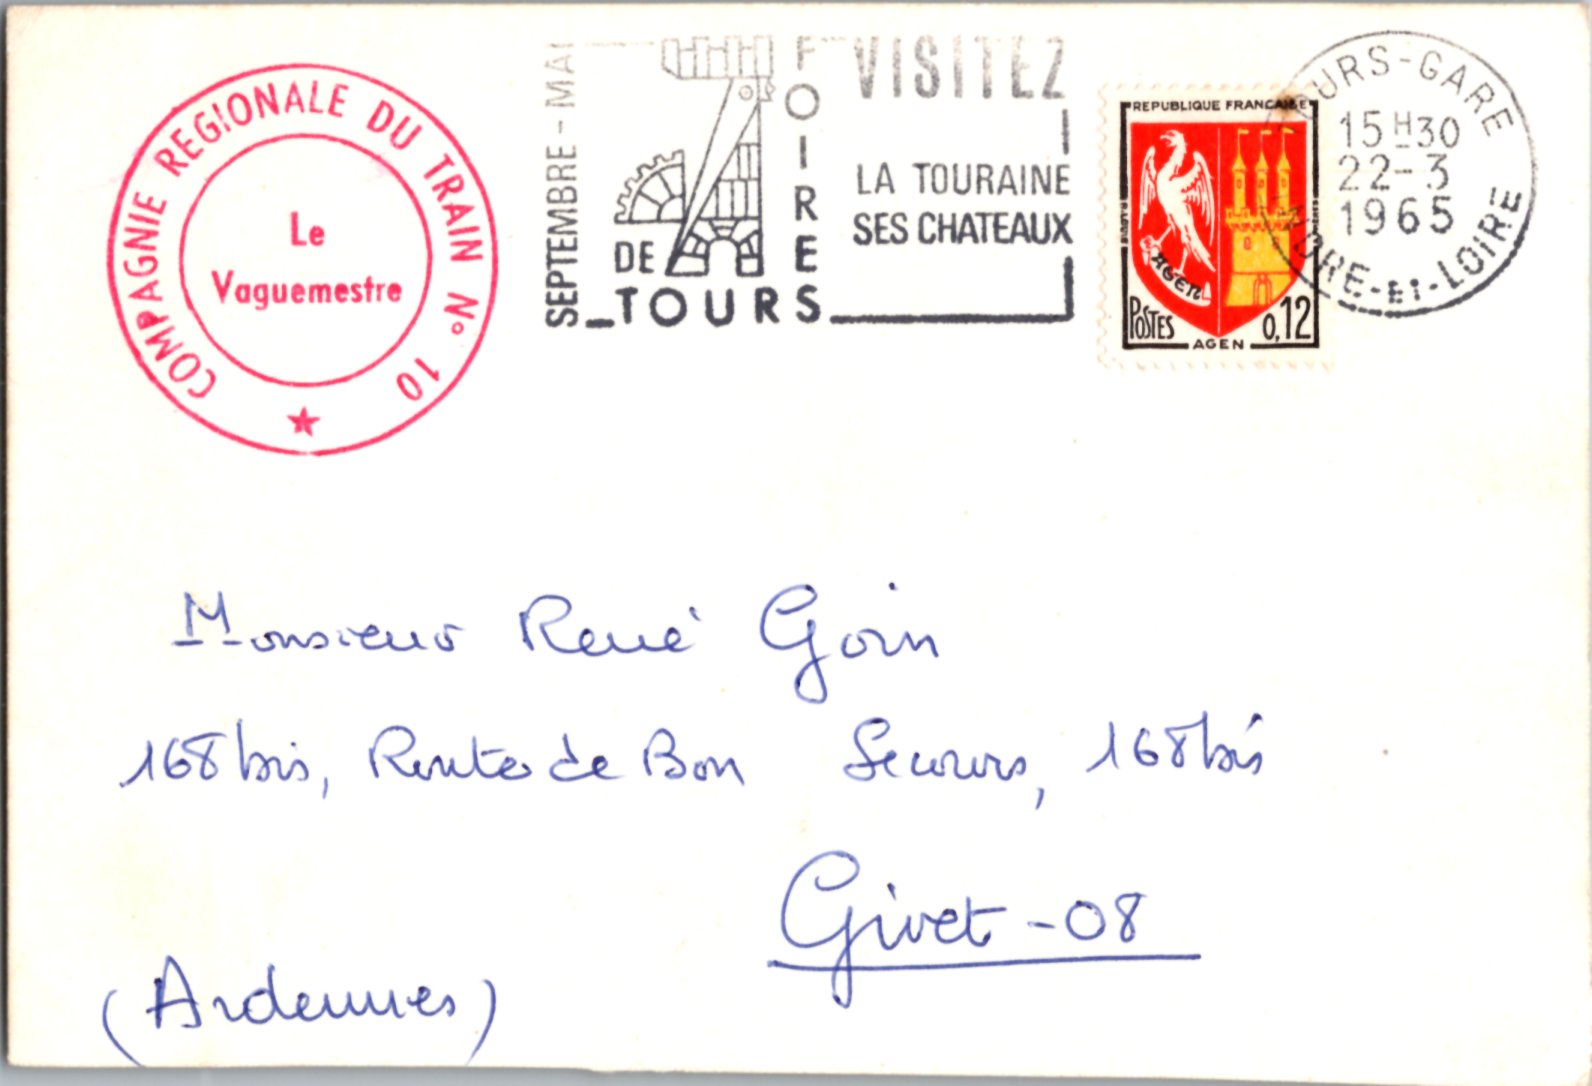 COMPAGNIE REGIONALE DU TRAIN N° 10
Le
Vaguemestre
SEPTEMBRE - MAI
FOIRES
DE
TOURS
VISITEZ
LA TOURAINE
SES CHATEAUX
REPUBLIQUE FRANCAISE
AGEN
POSTES
0,12
AGEN
TOURS-GARE
15H30
22-3
1965
INDRE-ET-LOIRE
Monsieur René Goin
168 bis, Route de Bon Secours, 168 bis
Givet - 08
(Ardennes)